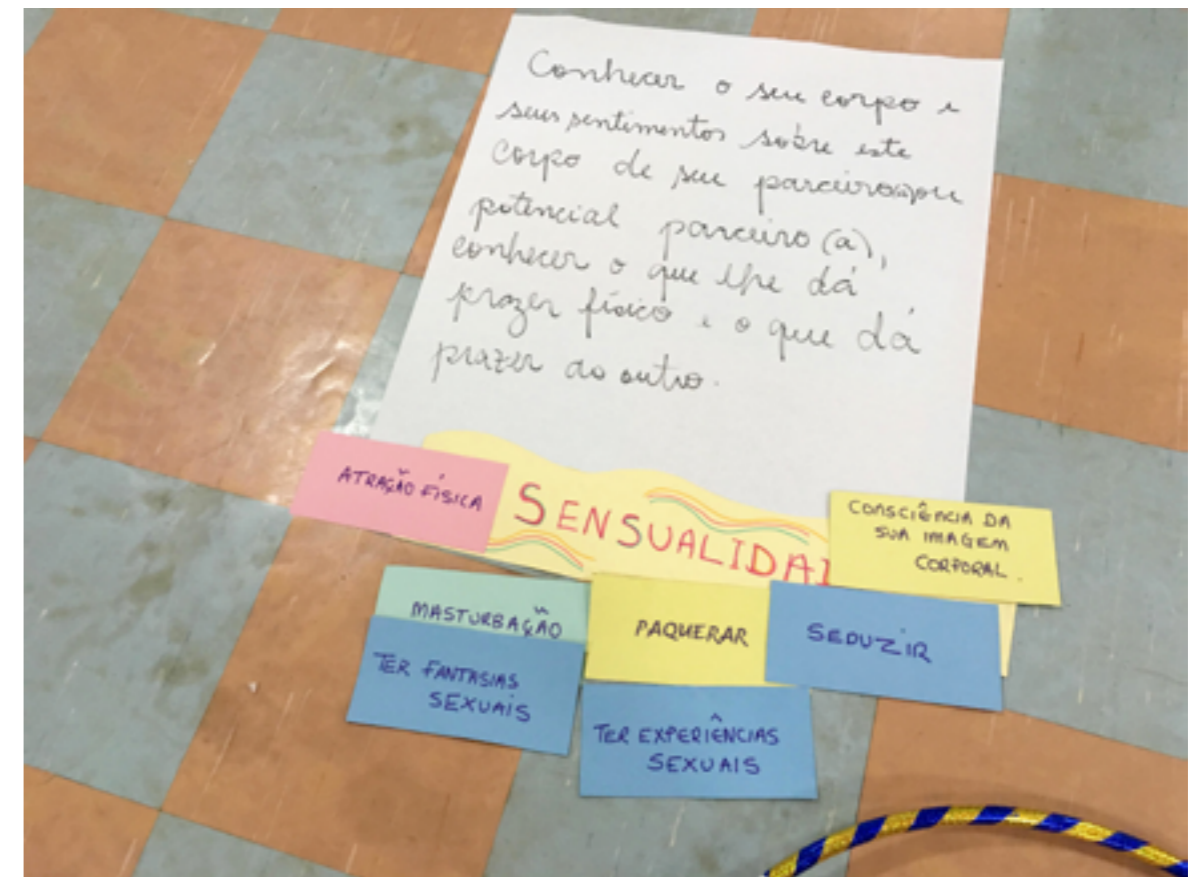 Conhecer o seu corpo e
seus sentimentos sobre este
corpo de seu parceiro(a) ou
potencial parceiro (a),
conhecer o que lhe dá
prazer físico e o que dá
prazer ao outro.
ATRAÇÃO FÍSICA
SENSUALIDA
CONSCIÊNCIA DA
SUA IMAGEM
CORPORAL.
MASTURBAÇÃO
PAQUERAR
SEDUZIR
TER FANTASIAS
SEXUAIS
TER EXPERIÊNCIAS
SEXUAIS